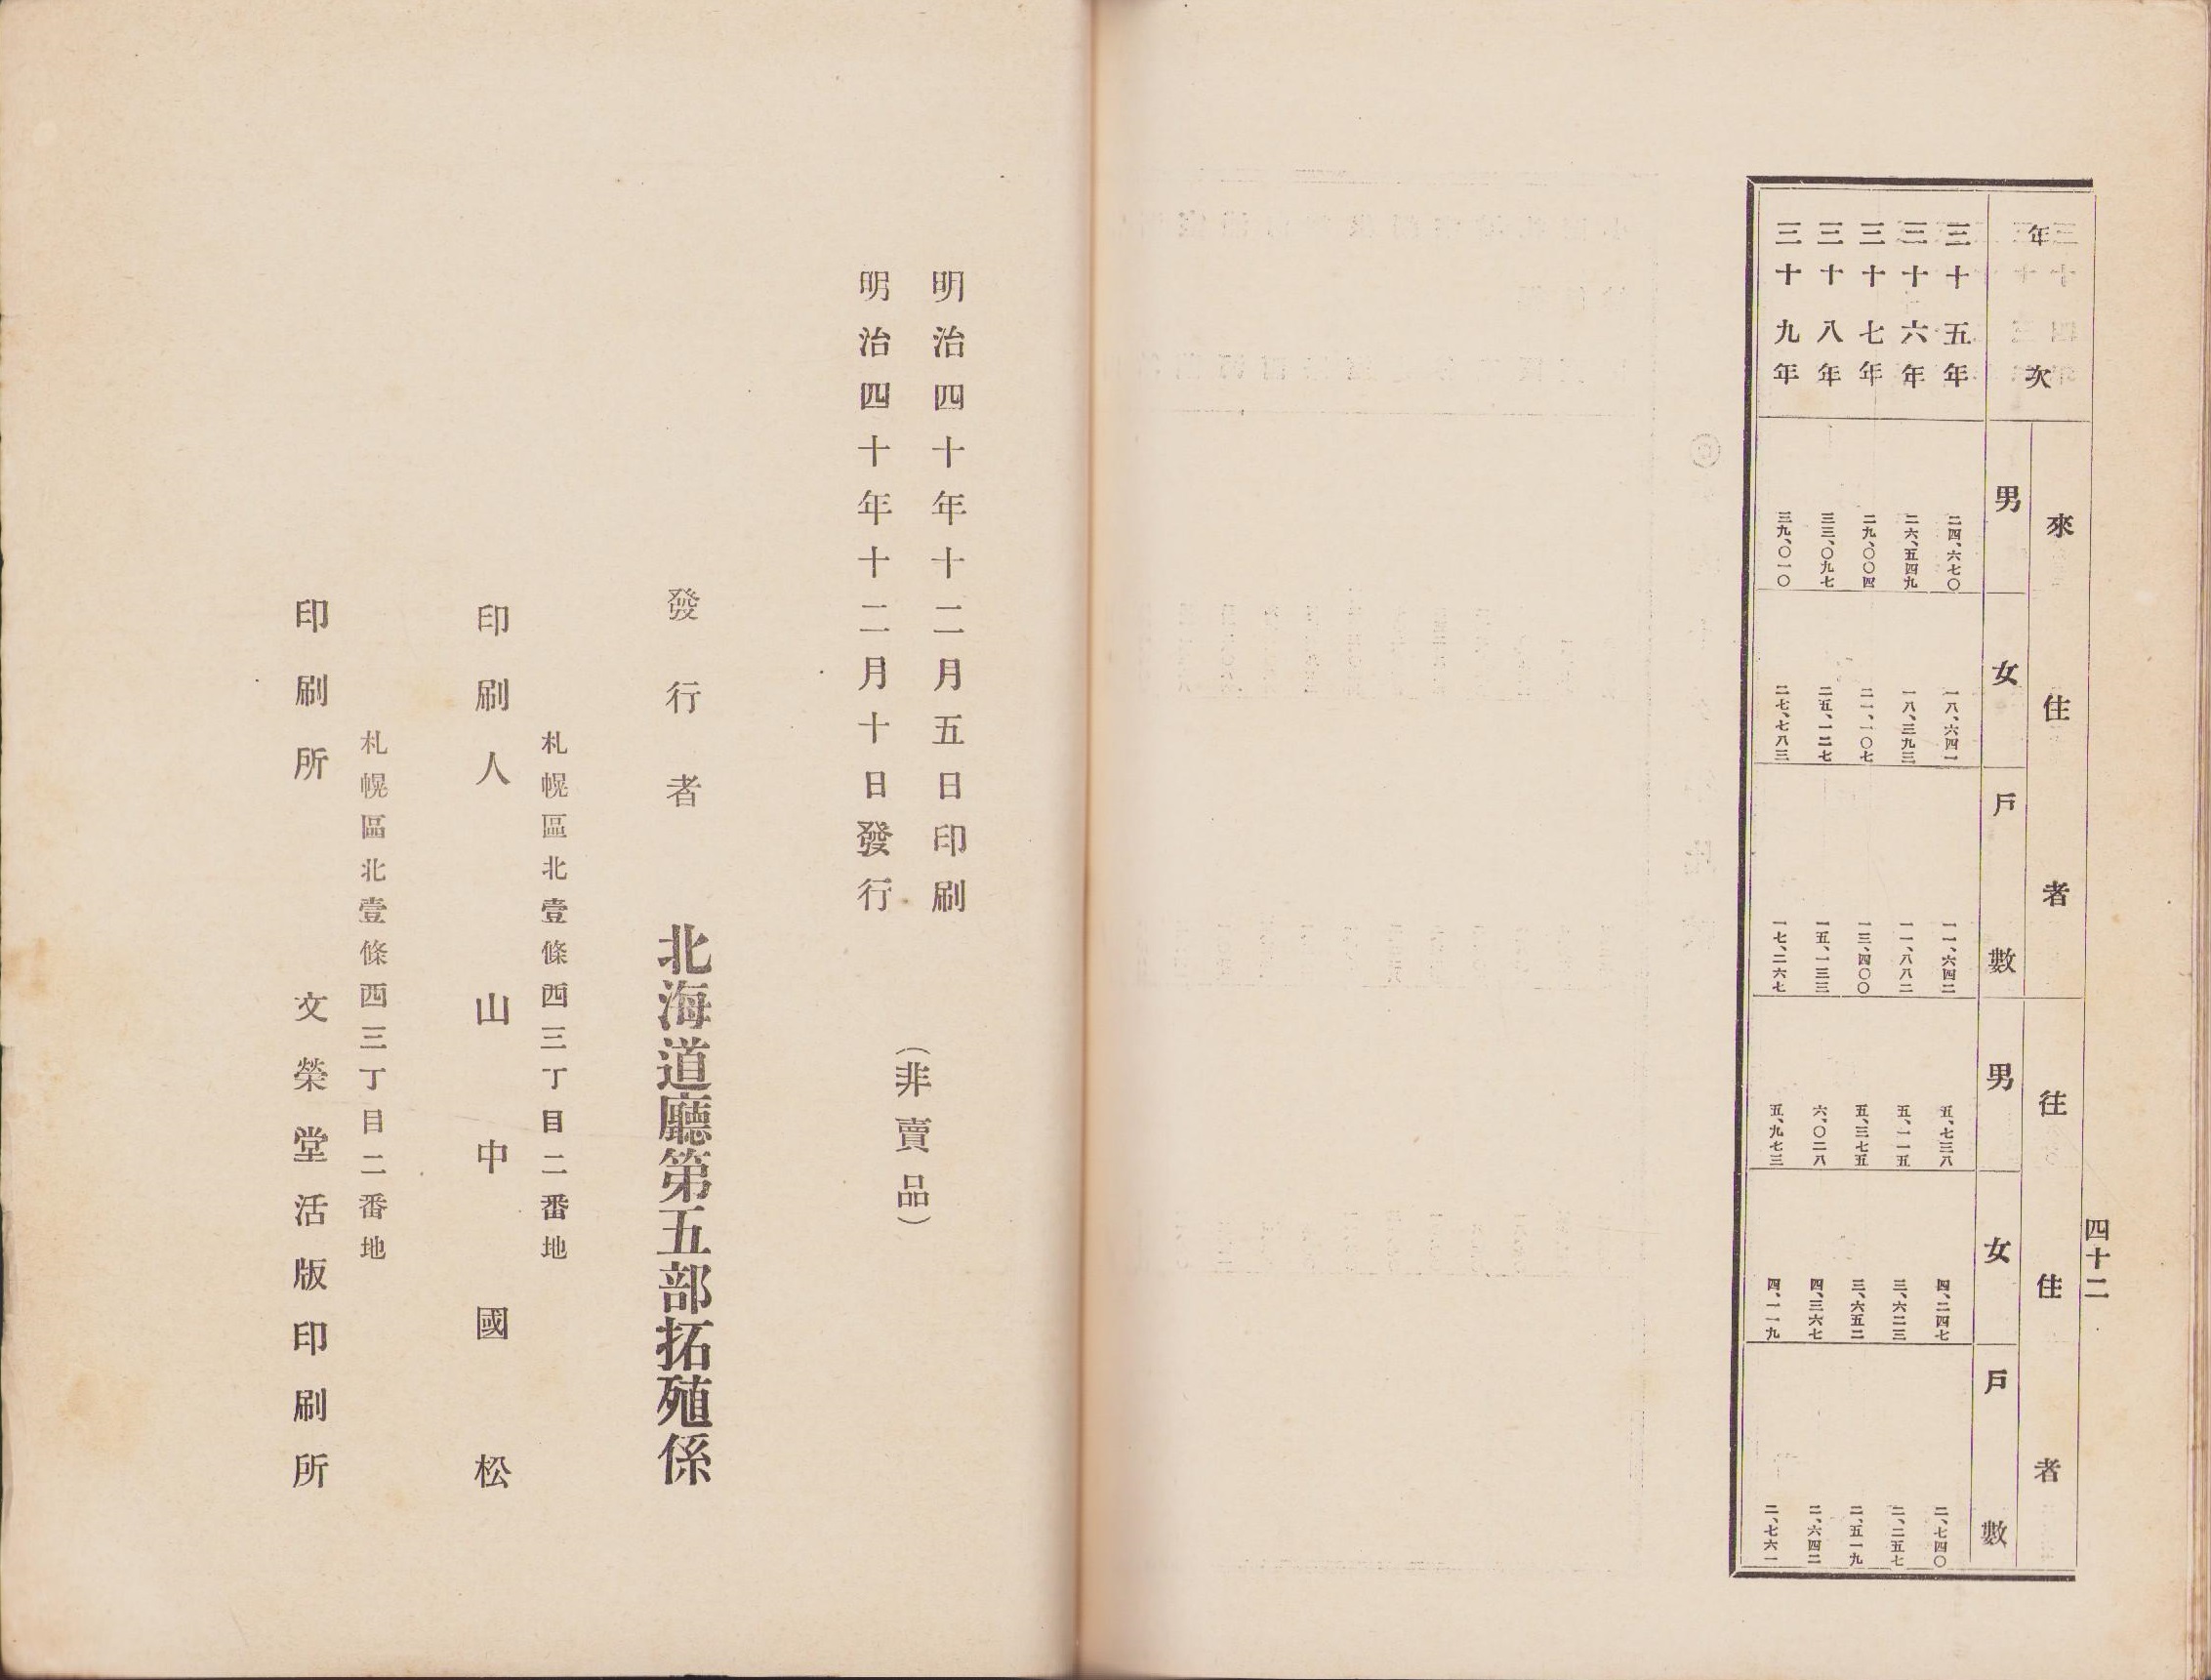 四十二
年次
來住者
往住者
男
女
戶數
男
女
戶數
三十五年 二四、六七〇 一八、六四一 一一、六四二 五、七三八 四、二四七 二、七四〇
三十六年 二六、五四九 一八、三九三 一一、八八二 五、一一五 三、六二三 二、二五七
三十七年 二九、〇〇四 二一、一〇七 一三、四〇〇 五、三七五 三、六五二 二、五一九
三十八年 三三、〇九七 二五、一二七 一五、一三三 六、〇二八 四、三六七 二、六四二
三十九年 三九、〇一〇 二七、七八三 一七、二六七 五、九七三 四、一一九 二、七六一
明治四十年十二月五日印刷
明治四十年十二月十日發行
(非賣品)
發行者 北海道廳第五部拓殖係
札幌區北壹條西三丁目二番地
印刷人 山中國松
札幌區北壹條西三丁目二番地
印刷所 文榮堂活版印刷所